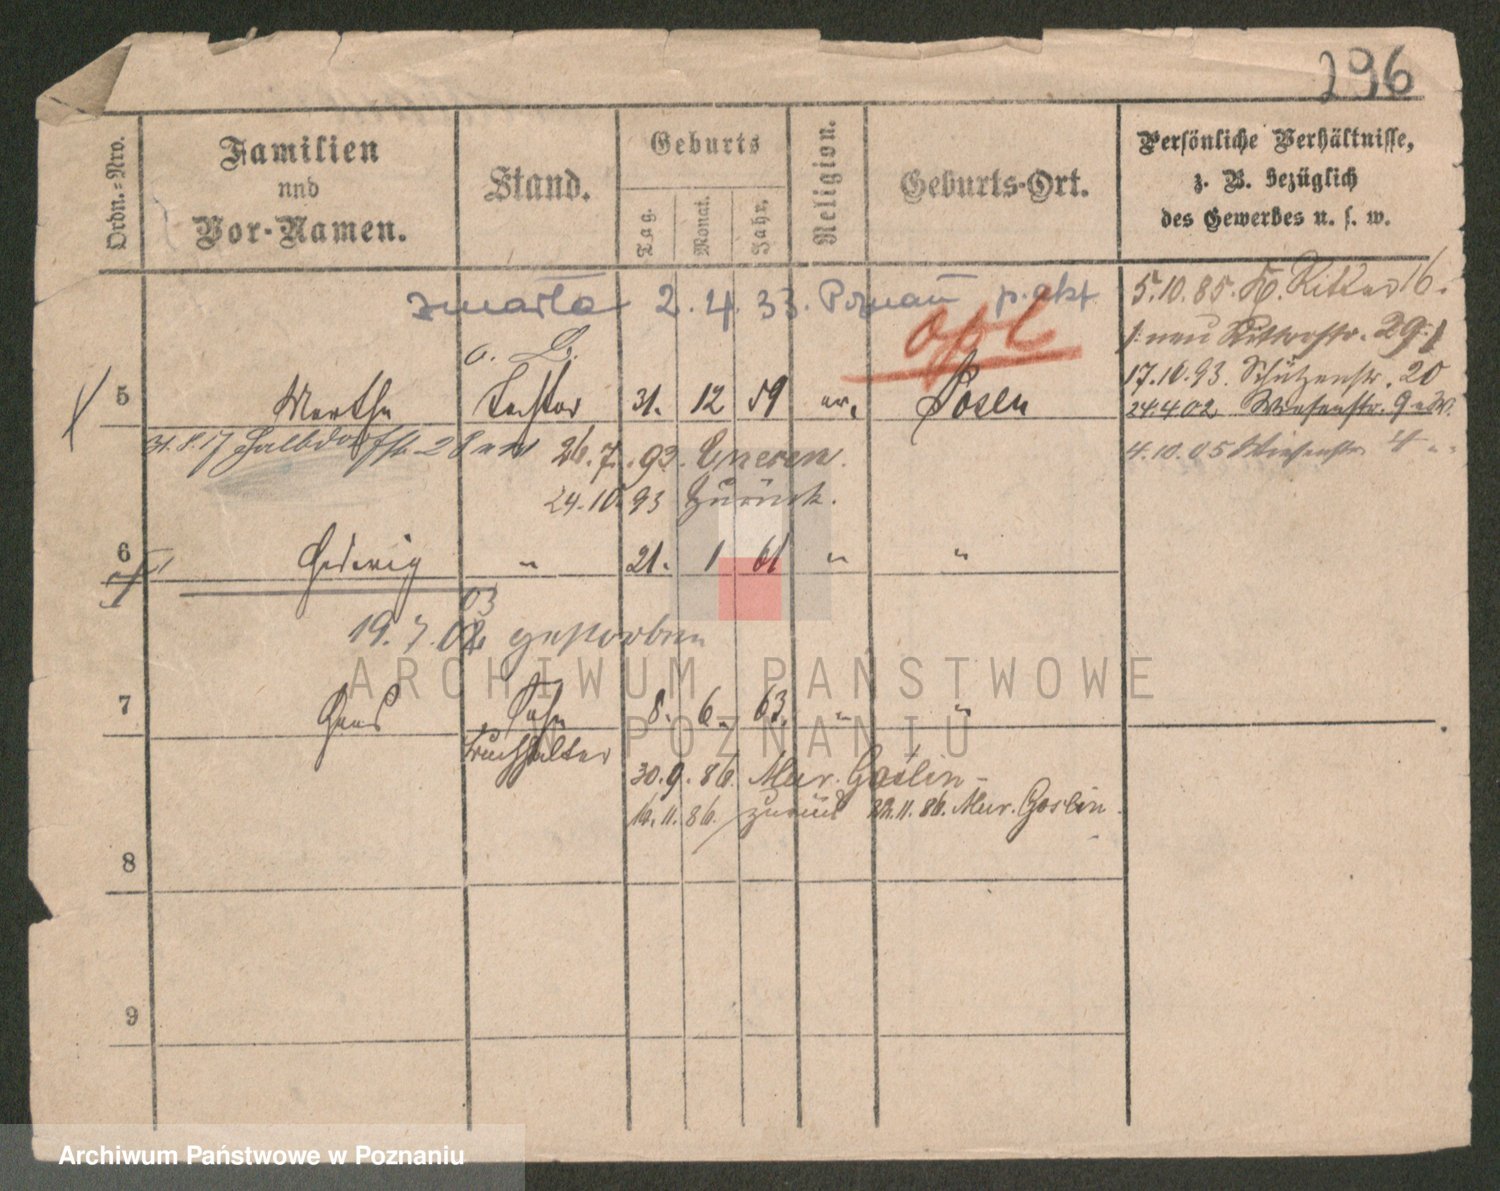 296
Ordn.=Nro.
Familien
und
Vor-Namen.
Stand.
Geburts
Tag.
Monat.
Jahr.
Religion.
Geburts-Ort.
Persönliche Verhältnisse,
z. B. bezüglich
des Gewerbes u. s. w.
zmarła 2.4.33. Poznań p. akt
5.10.85. Kl. Ritter 16.
neu Ritterstr. 29
17.10.93. Schützenstr. 20
24.4.02 Wiesenstr. 9
4.10.05 Wiesenstr. 4
o. G.
5 Martha Tochter 31. 12 59 ev. Posen
31.8.17 Halbdorfstr. 28
26.7.93.
24.10.93 Zurück.
6 Hedwig " 21. 1 61 " "
03
19.7.02 gestorben
7 Hans Sohn 8. 6. 63. " "
Buchhalter
30.9.86. Mur. Goslin
16.11.86. zurück 22.11.86. Mur. Goslin.
8
9
ARCHIWUM PAŃSTWOWE
W POZNANIU
Archiwum Państwowe w Poznaniu